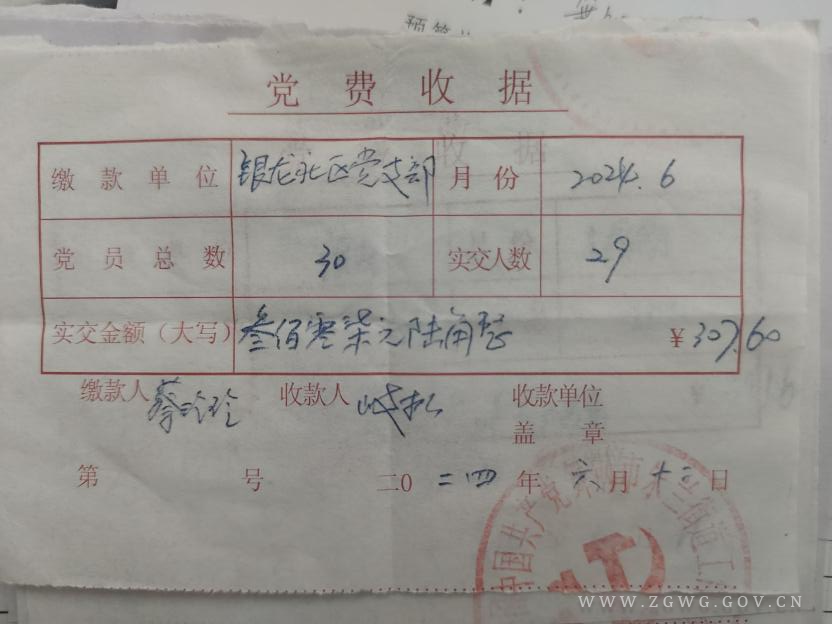 党费收据
缴款单位 银龙北区党支部 月份 2024.6
党员总数 30 实交人数 29
实交金额（大写） 叁佰零柒元陆角整 ¥307.60
缴款人 蔡玲玲 收款人 收款单位
盖章
第 号 二0二四年六月十三日
中国共产党
WWW.ZGWG.GOV.CN